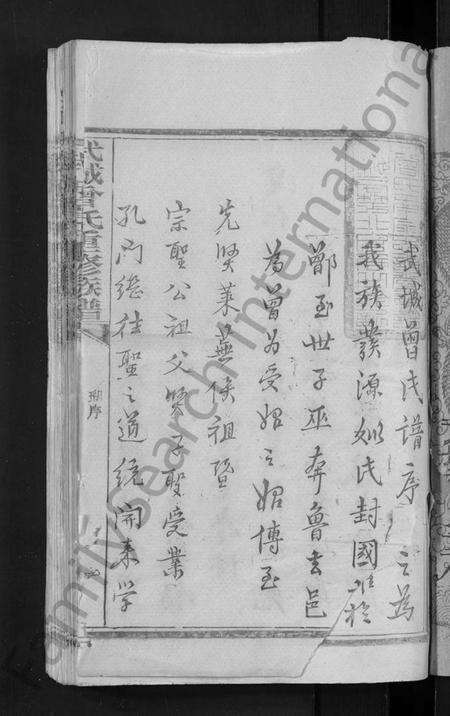 武城曾氏譜序
之為
我族發源姒氏封國
於
鄫至世子巫奔魯去邑
為曾為受姓之始傳至
先賢萊蕪侯祖暨
宗聖公祖父賢子聖受業
孔門繼往聖之道統開來學
武城曾氏重修族譜
FamilySearch International